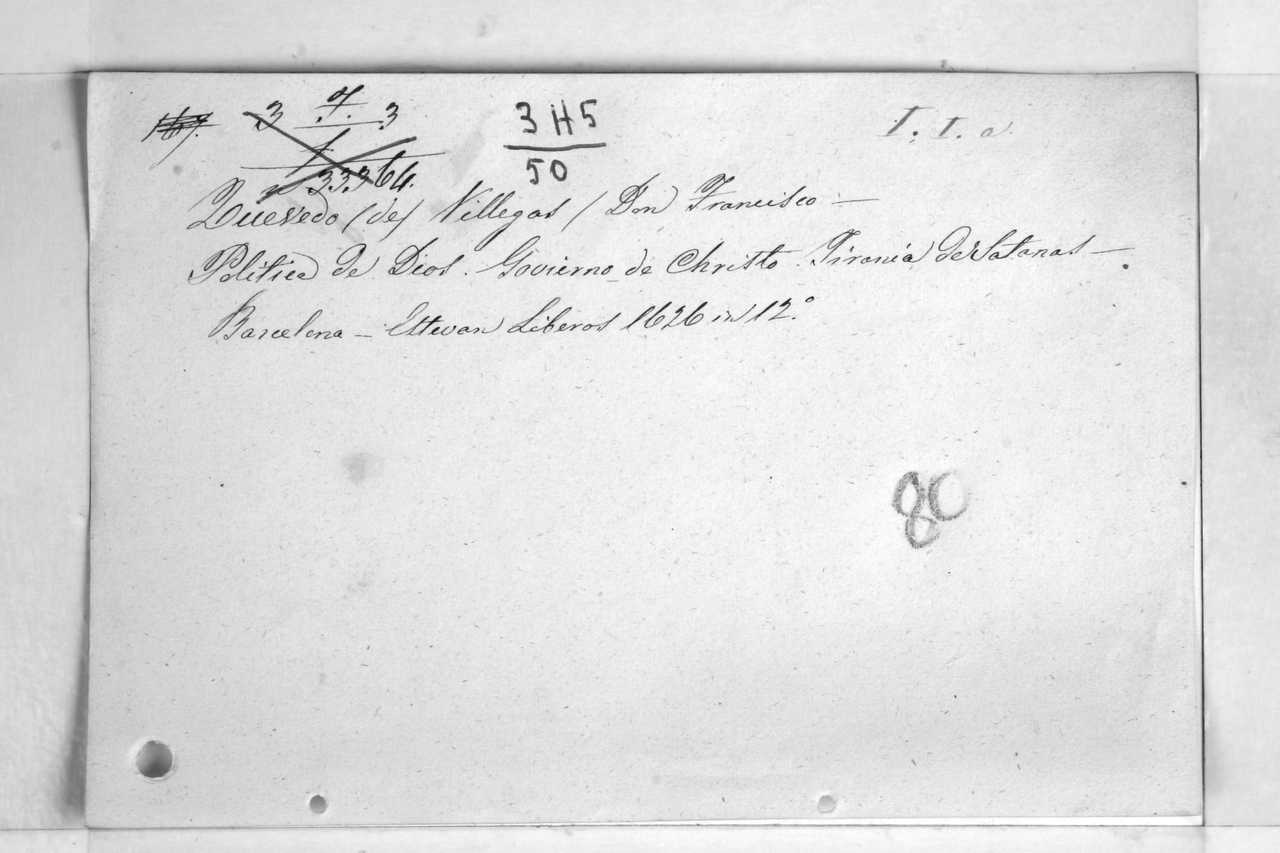 167.
3 7. 3
1
33364.
3 H 5
50
I. I. a
Quevedo (de) Villegas / Don Francisco —
Politica de Dios. Govierno de Christo. Tirania de Satanas —
Barcelona — Estevan Liberos 1626 in 12.°
80